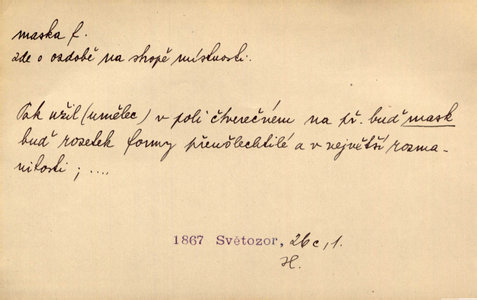 maska f.
zde o ozdobě na stropě místnosti.
Tak užil (umělec) v poli čtverečném na př. buď mask
buď rosetek formy přenšlechtilé a v největší rozma-
nitosti; ....
1867 Světozor, 26c, 1.
H.